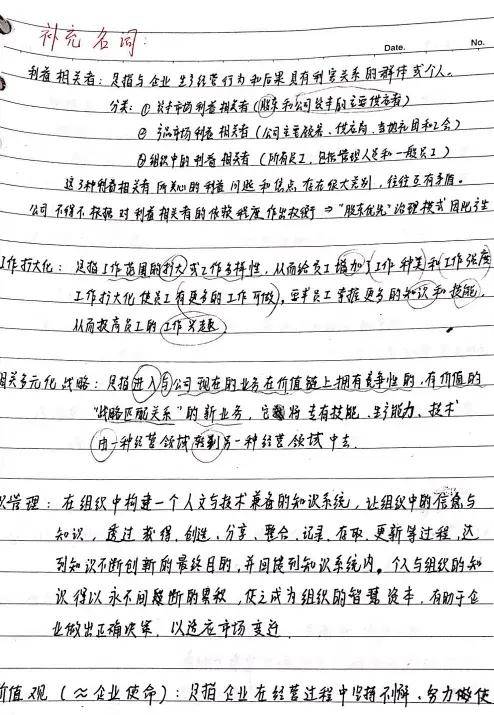 补充名词:
Date. No.
利益相关者: 是指与企业生产经营行为和后果具有利害关系的群体或个人。
分类: ① 资本市场利益相关者 (股东和公司资本的主要供应者)
② 产品市场利益相关者 (公司主要顾客、供应商、当地社团和工会)
③ 组织中的利益相关者 (所有员工, 包括管理人员和一般员工)
这3种利益相关者所关心的利益问题和焦点存在很大差别, 往往互有矛盾。
公司不得不根据对利益相关者的依赖程度作出权衡 ⇒ "股东优先"治理模式因此产生
工作扩大化: 是指工作范围的扩大或工作多样性, 从而给员工增加了工作种类和工作强度
工作扩大化使员工有更多的工作可做, 要求员工掌握更多的知识和技能,
从而提高员工的工作兴趣
相关多元化战略: 是指进入与公司现在的业务在价值链上拥有竞争性的、有价值的
"战略匹配关系"的新业务, 它将专有技能、生产能力、技术
由一种经营领域转到另一种经营领域中去.
识管理: 在组织中构建一个人文与技术兼备的知识系统, 让组织中的信息与
知识, 透过获得、创造、分享、整合、记录、存取、更新等过程, 达
到知识不断创新的最终目的, 并回馈到知识系统内。个人与组织的知
识得以永不间断的累积, 使之成为组织的智慧资本, 有助于企
业做出正确决策, 以适应市场变迁
价值观 (≈企业使命): 是指企业在经营过程中坚持不懈、努力做使